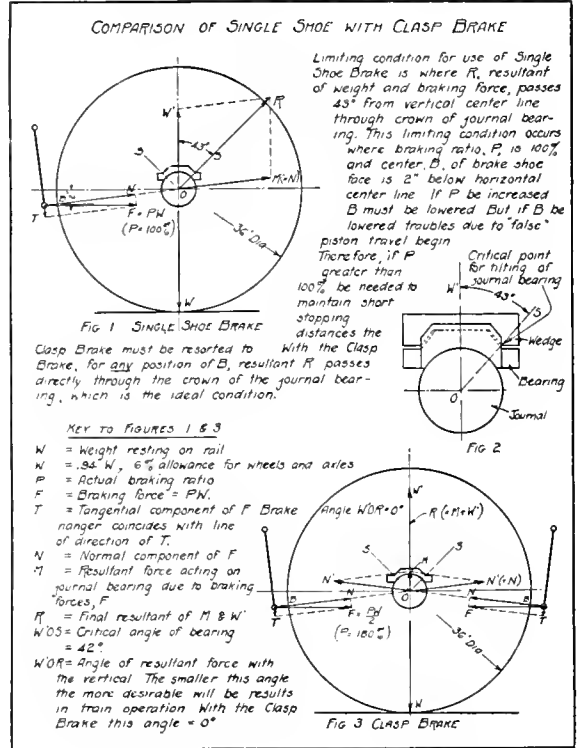 COMPARISON OF SINGLE SHOE WITH CLASP BRAKE
Limiting condition for use of Single
Shoe Brake is where R, resultant
of weight and braking force, passes
43° from vertical center line
through crown of journal bear-
ing. This limiting condition occurs
where braking ratio, P, is 100%
and center, B, of brake shoe
face is 2" below horizontal
center line If P be increased
B must be lowered But if B be
lowered troubles due to "false"
piston travel begin
Therefore, if P
greater than
100% be needed to
maintain short
stopping
distances the
Clasp Brake must be resorted to With the Clasp
Brake, for any position of B, resultant R passes
directly through the crown of the journal bear-
ing, which is the ideal condition.
W'
R
43°
S
S
O
M(=N)
N
B
2"
T
F = PW
(P = 100%)
36" Dia
W
FIG 1 SINGLE SHOE BRAKE
Critical point
for tilting of
journal bearing
W'
43°
S
Wedge
Bearing
O
Journal
FIG 2
KEY TO FIGURES 1 & 3
W = Weight resting on rail
W = .94 W, 6% allowance for wheels and axles
P = Actual braking ratio
F = Braking force = PW.
T = Tangential component of F Brake
hanger coincides with line
of direction of T.
N = Normal component of F
M = Resultant force acting on
journal bearing due to braking
forces, F
R = Final resultant of M & W'
W'OS = Critical angle of bearing
= 42°.
W'OR = Angle of resultant force with
the vertical The smaller this angle
the more desirable will be results
in train operation With the Clasp
Brake this angle = 0°
Angle W'OR = 0°
W'
R (=M+W')
S
M
S
N'
N'(=N)
O
N
N
B
B
T
T
F = PW
2
F
(P = 180%)
36" Dia
W
FIG 3 CLASP BRAKE